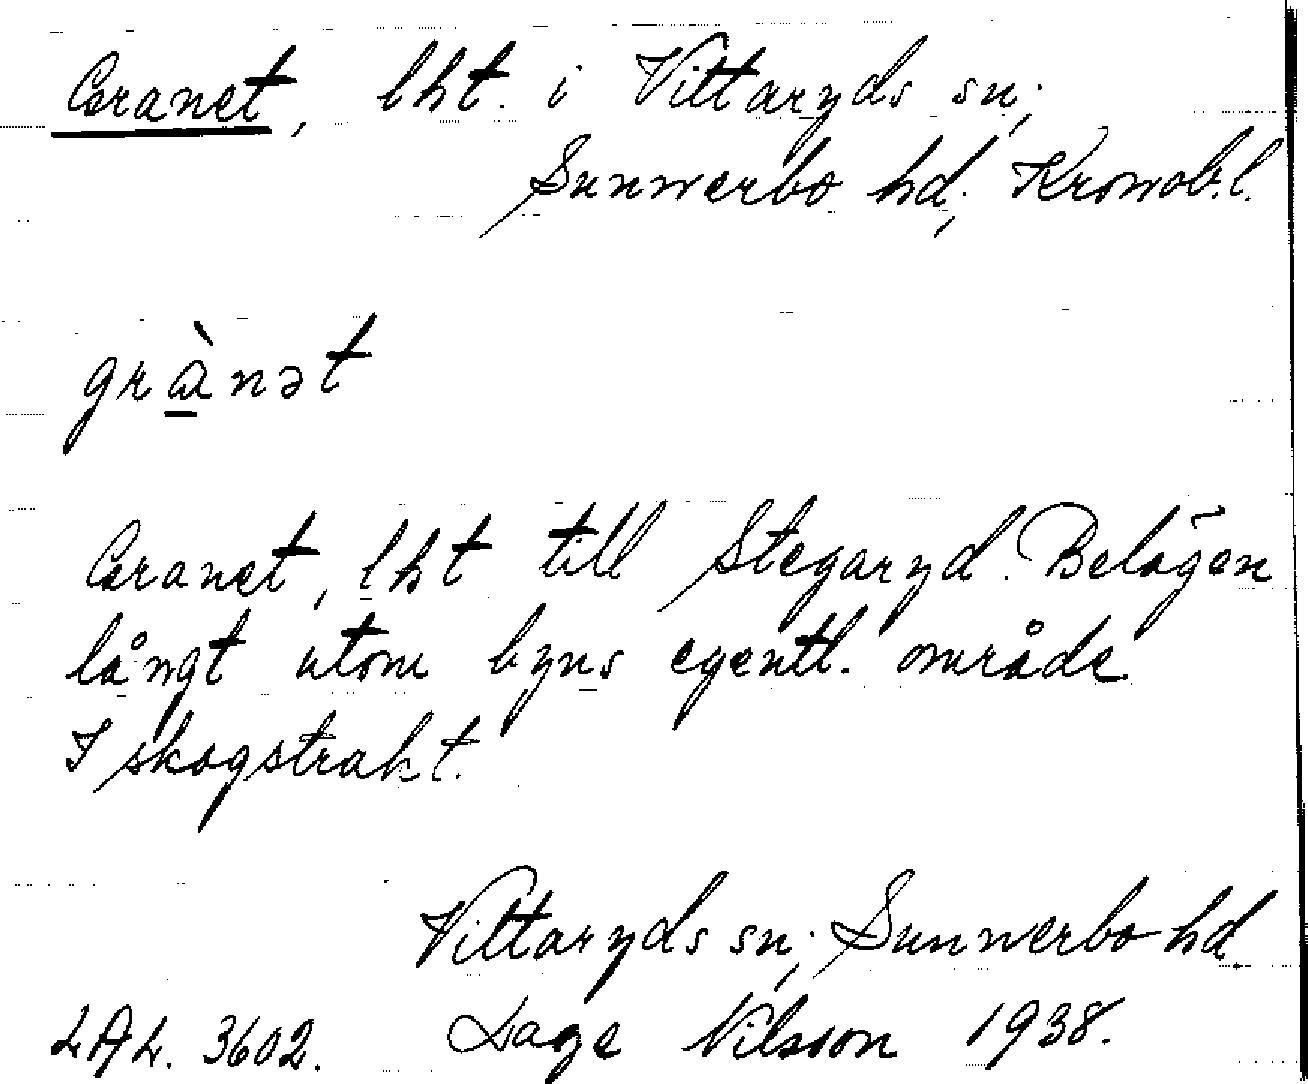 Granet, lht. i Vittaryds sn;
Sunnerbo hd; Kronob.l.
grànət
Granet, lht till Stegaryd. Belägen
långt utom byns egentl. område
I skogstrakt.
Vittaryds sn; Sunnerbo hd.
LAL. 3602. Sage Nilsson 1938.